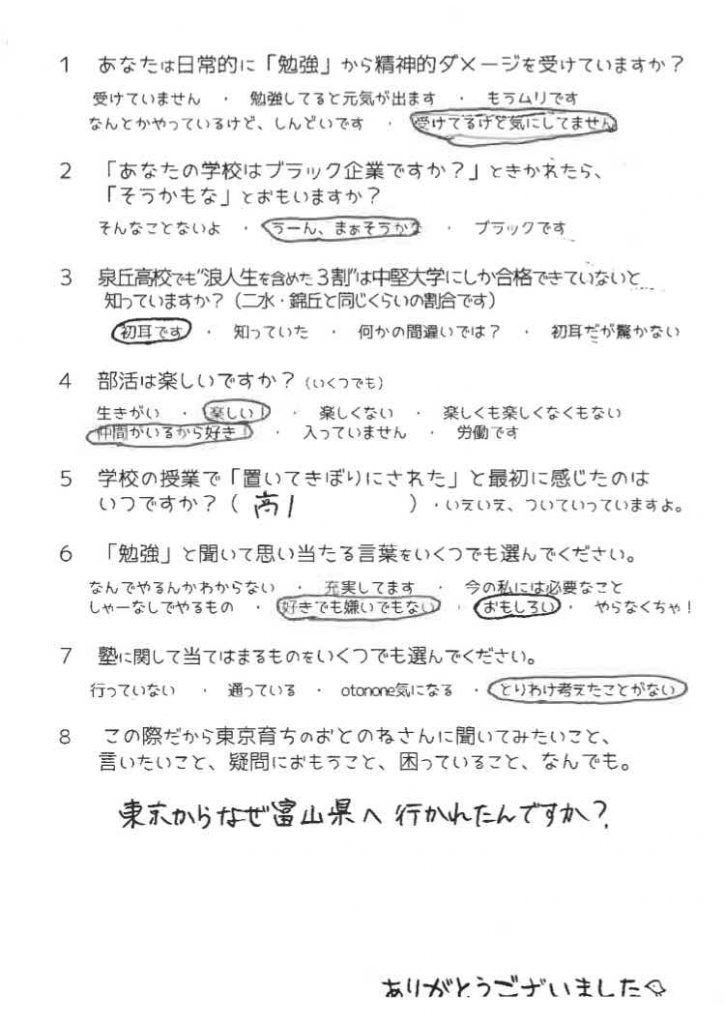 1 あなたは日常的に「勉強」から精神的ダメージを受けていますか？
受けていません ・ 勉強してると元気が出ます ・ もうムリです
なんとかやっているけど、しんどいです ・ 受けてるけど気にしてません
2 「あなたの学校はブラック企業ですか？」ときかれたら、
「そうかもな」とおもいますか？
そんなことないよ ・ うーん、まぁそうかな ・ ブラックです
3 泉丘高校でも“浪人生を含めた３割”は中堅大学にしか合格できていないと
知っていますか？（二水・錦丘と同じくらいの割合です）
初耳です ・ 知っていた ・ 何かの間違いでは？ ・ 初耳だが驚かない
4 部活は楽しいですか？（いくつでも）
生きがい ・ 楽しい！ ・ 楽しくない ・ 楽しくも楽しくなくもない
仲間がいるから好き！ ・ 入っていません ・ 労働です
5 学校の授業で「置いてきぼりにされた」と最初に感じたのは
いつですか？（ 高1 ）・いえいえ、ついていっていますよ。
6 「勉強」と聞いて思い当たる言葉をいくつでも選んでください。
なんでやるんかわからない ・ 充実してます ・ 今の私には必要なこと
しゃーなしでやるもの ・ 好きでも嫌いでもない ・ おもしろい ・ やらなくちゃ！
7 塾に関して当てはまるものをいくつでも選んでください。
行っていない ・ 通っている ・ otonone気になる ・ とりわけ考えたことがない
8 この際だから東京育ちのおとのねさんに聞いてみたいこと、
言いたいこと、疑問におもうこと、困っていること、なんでも。
東京からなぜ富山県へ行かれたんですか？
ありがとうございました